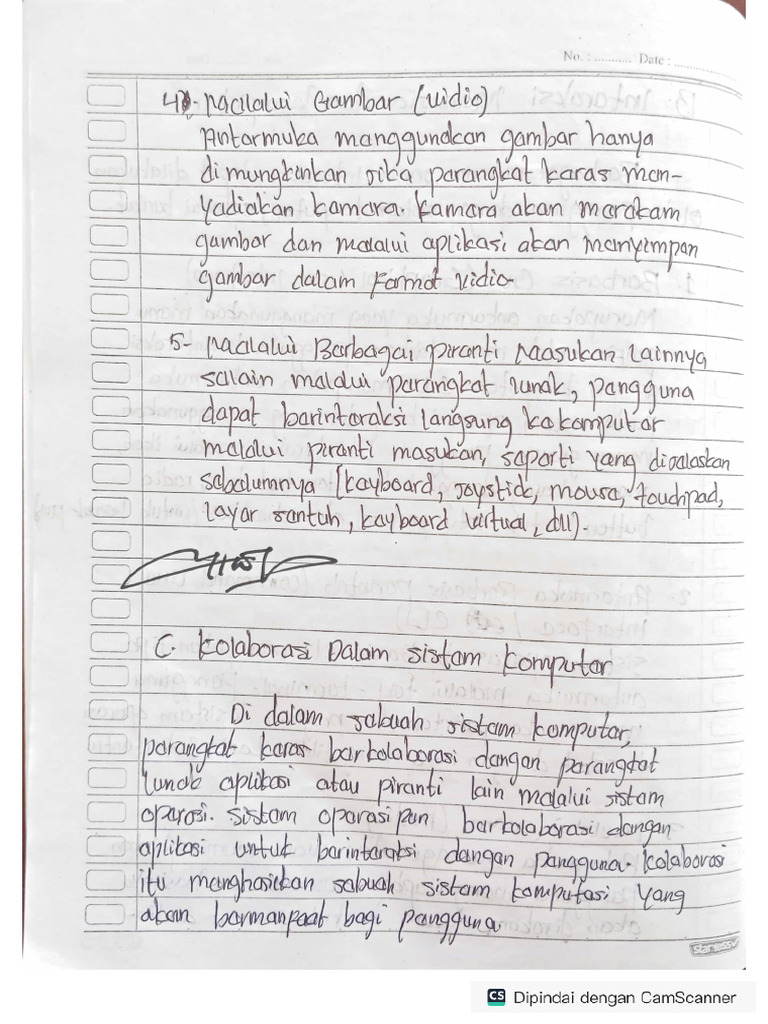 No. : ........... Date : ...........
4. Melalui Gambar (Vidio)
Antarmuka menggunakan gambar hanya
dimungkinkan jika perangkat keras men-
yediakan kamera. Kamera akan merekam
gambar dan melalui aplikasi akan menyimpan
gambar dalam format Vidio.
5. Melalui Berbagai piranti Masukan lainnya
selain melalui perangkat lunak, pengguna
dapat berinteraksi langsung kekomputer
melalui piranti masukan, seperti yang dijelaskan
sebelumnya (keyboard, joystick, mouse, touchpad,
layar sentuh, keyboard virtual, dll).
C. Kolaborasi Dalam sistem komputer
Di dalam sebuah sistem komputer,
perangkat keras berkolaborasi dengan perangkat
lunak aplikasi atau piranti lain melalui sistem
operasi. sistem operasi pun berkolaborasi dengan
aplikasi untuk berinteraksi dengan pengguna. kolaborasi
itu menghasilkan sebuah sistem komputasi yang
akan bermanpaat bagi pengguna
CS Dipindai dengan CamScanner